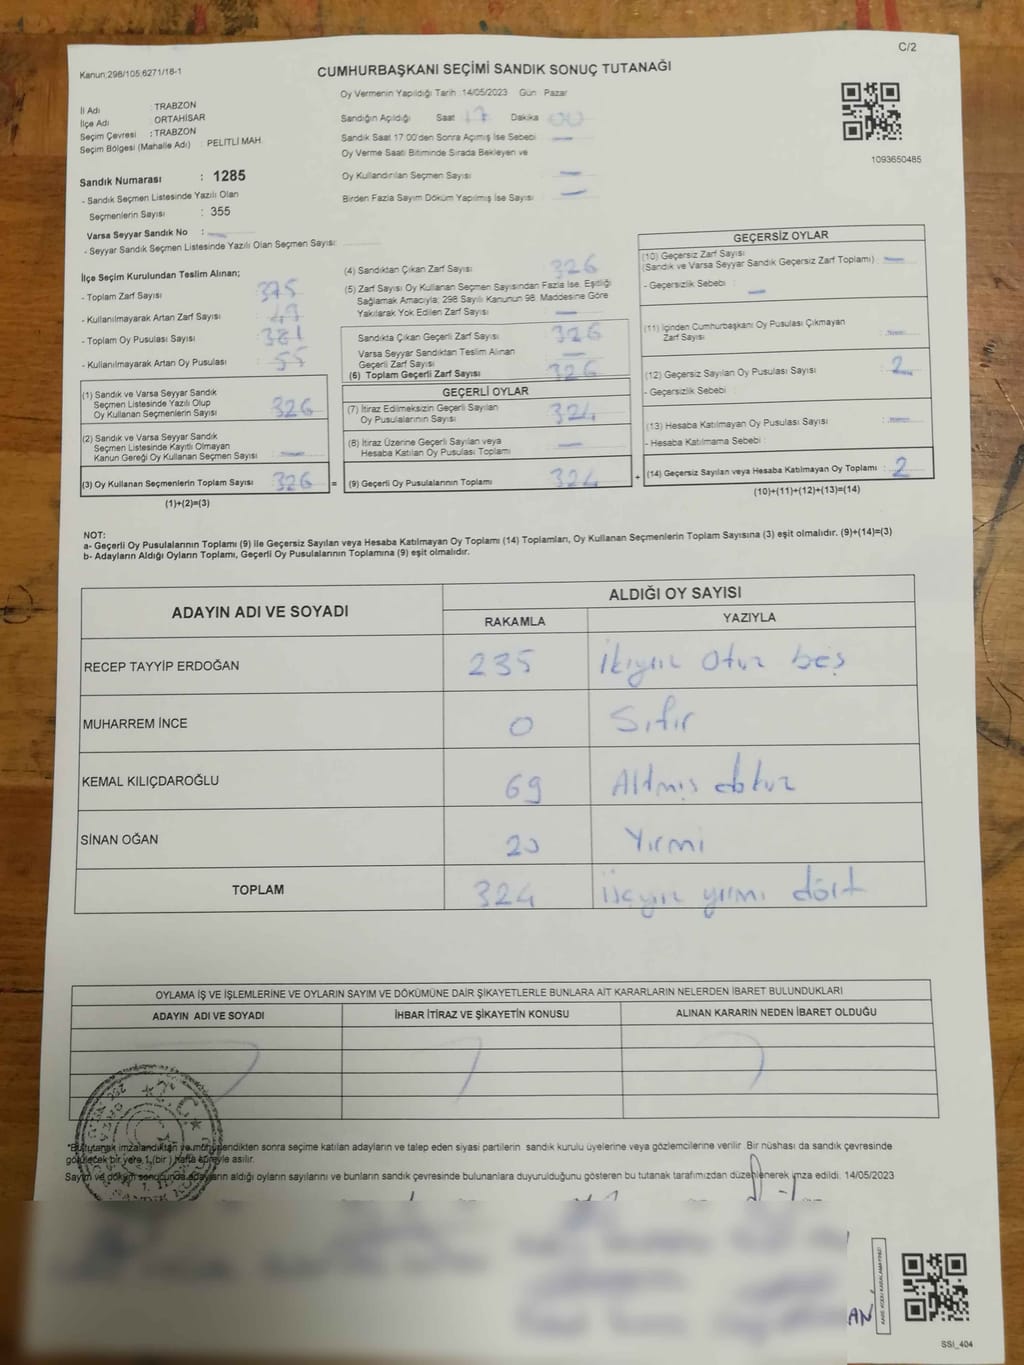 C/2
Kanun;298/105;6271/18-1
CUMHURBAŞKANI SEÇİMİ SANDIK SONUÇ TUTANAĞI
Oy Vermenin Yapıldığı Tarih :14/05/2023 Gün Pazar
İl Adı : TRABZON
İlçe Adı : ORTAHİSAR
Seçim Çevresi : TRABZON
Seçim Bölgesi (Mahalle Adı) : PELİTLİ MAH.
Sandığın Açıldığı Saat 17 Dakika 00
Sandık Saat 17:00'den Sonra Açımış İse Sebebi
Oy Verme Saati Bitiminde Sırada Bekleyen ve
Oy Kullandırılan Seçmen Sayısı
Birden Fazla Sayım Döküm Yapılmış İse Sayısı
1093650485
Sandık Numarası : 1285
- Sandık Seçmen Listesinde Yazılı Olan
Seçmenlerin Sayısı : 355
Varsa Seyyar Sandık No :
- Seyyar Sandık Seçmen Listesinde Yazılı Olan Seçmen Sayısı:
İlçe Seçim Kurulundan Teslim Alınan;
- Toplam Zarf Sayısı : 375
- Kullanılmayarak Artan Zarf Sayısı : 49
- Toplam Oy Pusulası Sayısı : 381
- Kullanılmayarak Artan Oy Pusulası : 55
(1) Sandık ve Varsa Seyyar Sandık
Seçmen Listesinde Yazılı Olup
Oy Kullanan Seçmenlerin Sayısı 326
(2) Sandık ve Varsa Seyyar Sandık
Seçmen Listesinde Kayıtlı Olmayan
Kanun Gereği Oy Kullanan Seçmen Sayısı
(3) Oy Kullanan Seçmenlerin Toplam Sayısı 326 =
(1)+(2)=(3)
(4) Sandıktan Çıkan Zarf Sayısı 326
(5) Zarf Sayısı Oy Kullanan Seçmen Sayısından Fazla İse, Eşitliği
Sağlamak Amacıyla; 298 Sayılı Kanunun 98. Maddesine Göre
Yakılarak Yok Edilen Zarf Sayısı
Sandıkta Çıkan Geçerli Zarf Sayısı 326
Varsa Seyyar Sandıktan Teslim Alınan
Geçerli Zarf Sayısı
(6) Toplam Geçerli Zarf Sayısı 326
GEÇERLİ OYLAR
(7) İtiraz Edilmeksizin Geçerli Sayılan
Oy Pusulalarının Sayısı 324
(8) İtiraz Üzerine Geçerli Sayılan veya
Hesaba Katılan Oy Pusulası Toplamı
(9) Geçerli Oy Pusulalarının Toplamı 324 +
GEÇERSİZ OYLAR
(10) Geçersiz Zarf Sayısı
(Sandık ve Varsa Seyyar Sandık Geçersiz Zarf Toplamı) :
- Geçersizlik Sebebi :
(11) İçinden Cumhurbaşkanı Oy Pusulası Çıkmayan
Zarf Sayısı :
(12) Geçersiz Sayılan Oy Pusulası Sayısı : 2
- Geçersizlik Sebebi :
(13) Hesaba Katılmayan Oy Pusulası Sayısı :
- Hesaba Katılmama Sebebi :
(14) Geçersiz Sayılan veya Hesaba Katılmayan Oy Toplamı : 2
(10)+(11)+(12)+(13)=(14)
NOT:
a- Geçerli Oy Pusulalarının Toplamı (9) ile Geçersiz Sayılan veya Hesaba Katılmayan Oy Toplamı (14) Toplamları, Oy Kullanan Seçmenlerin Toplam Sayısına (3) eşit olmalıdır. (9)+(14)=(3)
b- Adayların Aldığı Oyların Toplamı, Geçerli Oy Pusulalarının Toplamına (9) eşit olmalıdır.
ADAYIN ADI VE SOYADI ALDIĞI OY SAYISI
RAKAMLA YAZIYLA
RECEP TAYYİP ERDOĞAN 235 ikiyüz otuz beş
MUHARREM İNCE 0 Sıfır
KEMAL KILIÇDAROĞLU 69 Altmış dokuz
SİNAN OĞAN 20 Yirmi
TOPLAM 324 üçyüz yirmi dört
OYLAMA İŞ VE İŞLEMLERİNE VE OYLARIN SAYIM VE DÖKÜMÜNE DAİR ŞİKAYETLERLE BUNLARA AİT KARARLARIN NELERDEN İBARET BULUNDUKLARI
ADAYIN ADI VE SOYADI İHBAR İTİRAZ VE ŞİKAYETİN KONUSU ALINAN KARARIN NEDEN İBARET OLDUĞU
imzalandıktan ve mühürlendikten sonra seçime katılan adayların ve talep eden siyasi partilerin sandık kurulu üyelerine veya gözlemcilerine verilir. Bir nüshası da sandık çevresinde
görülecek bir yere 1 (bir) hafta süreyle asılır.
Sayım ve döküm sonucunda adayların aldığı oyların sayılarını ve bunların sandık çevresinde bulunanlara duyurulduğunu gösteren bu tutanak tarafımızdan düzenlenerek imza edildi. 14/05/2023
AN
SSI_404